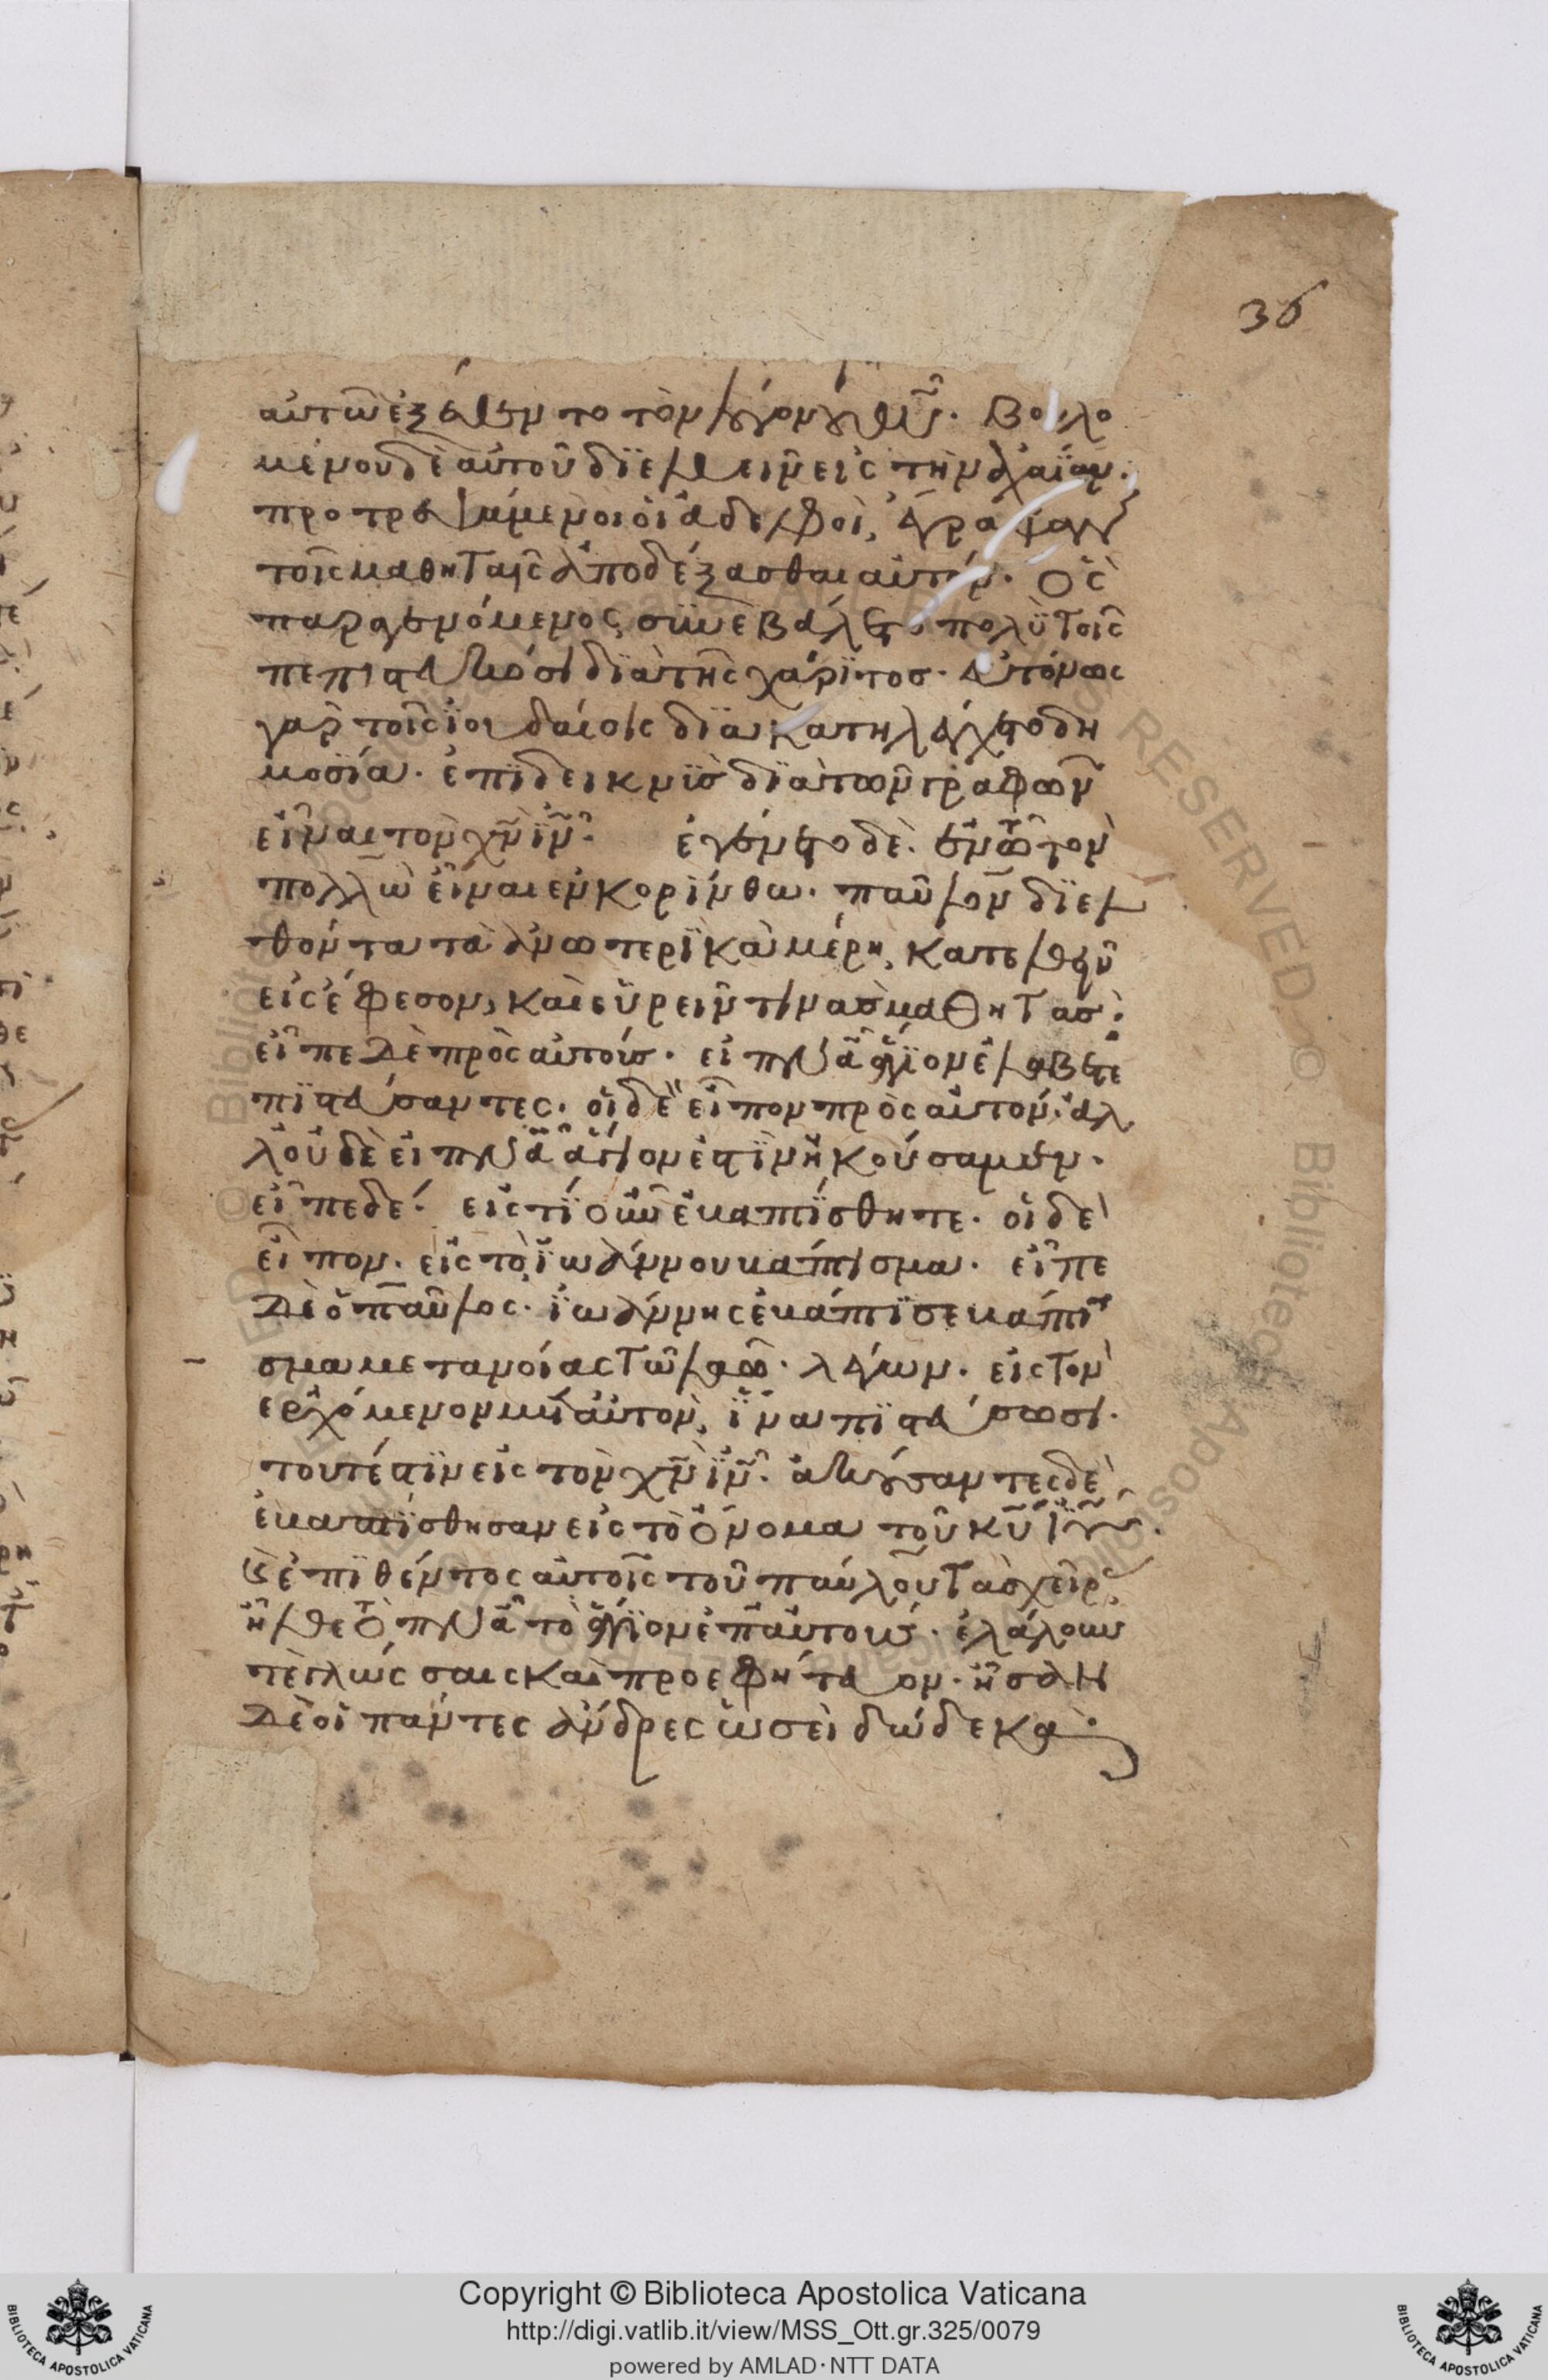 36
αὐτῶ ἐξέθεντο τὸν λόγον τοῦ θυ. Βουλο
μένου δὲ αὐτοῦ διελθεῖν εἰς τὴν ἀχαΐαν.
προτρεψάμενοι οἱ ἀδελφοὶ, ἔγραψαν
τοῖς μαθηταῖς ἀποδέξασθαι αὐτόν. Ὃς
παραγενόμενος, συνεβάλετο πολὺ τοῖς
πεπιστευκόσι διὰ τῆς χάριτος. εὐτόνως
γὰρ τοῖς ἰουδαίοις διακατηλέγχετο δη
μοσία. ἐπιδεικνὺς διὰ τῶν γραφῶν
εἶναι τὸν χν ιν. ἐγένετο δὲ. ἐν τῶ τὸν
ἀπολλὼ εἶναι ἐν κορίνθω. παῦλον διελ
θόντα τὰ ἀνωτερικὰ μέρη, κατελθεῖν
εἰς ἔφεσον, καὶ εὑρεῖν τινὰς μαθητάς.
εἶπε δὲ πρὸς αὐτούς. εἰ πνα ἅγιον ἐλάβετε
πιστεύσαντες. οἱ δὲ εἶπον πρὸς αὐτόν. ἀλ
λ' οὐδὲ εἰ πνα ἅγιον ἐστὶν ἠκούσαμεν.
εἶπε δέ. εἰς τί οὖν ἐβαπτίσθητε. οἱ δὲ
εἶπον. εἰς τὸ ἰωάννου βάπτισμα. εἶπε
δὲ ὁ παῦλος. ἰωάννης ἐβάπτισε βάπτι
σμα μετανοίας τῶ λαῶ. λέγων. εἰς τὸν
ἐρχόμενον μετ' αὐτὸν, ἵνα πιστεύσωσι.
τουτέστιν εἰς τὸν χν ιν. ἀκούσαντες δὲ
ἐβαπτίσθησαν εἰς τὸ ὄνομα τοῦ κυ ιυ.
καὶ ἐπιθέντος αὐτοῖς τοῦ παύλου τὰς χεῖρας,
ἦλθε τὸ πνα τὸ ἅγιον ἐπ' αὐτούς. ἐλάλουν
τε γλώσσαις καὶ προεφήτευον. ἦσαν
δὲ οἱ πάντες ἄνδρες ὡσεὶ δώδεκα.
Copyright © Biblioteca Apostolica Vaticana
http://digi.vatlib.it/view/MSS_Ott.gr.325/0079
powered by AMLAD·NTT DATA